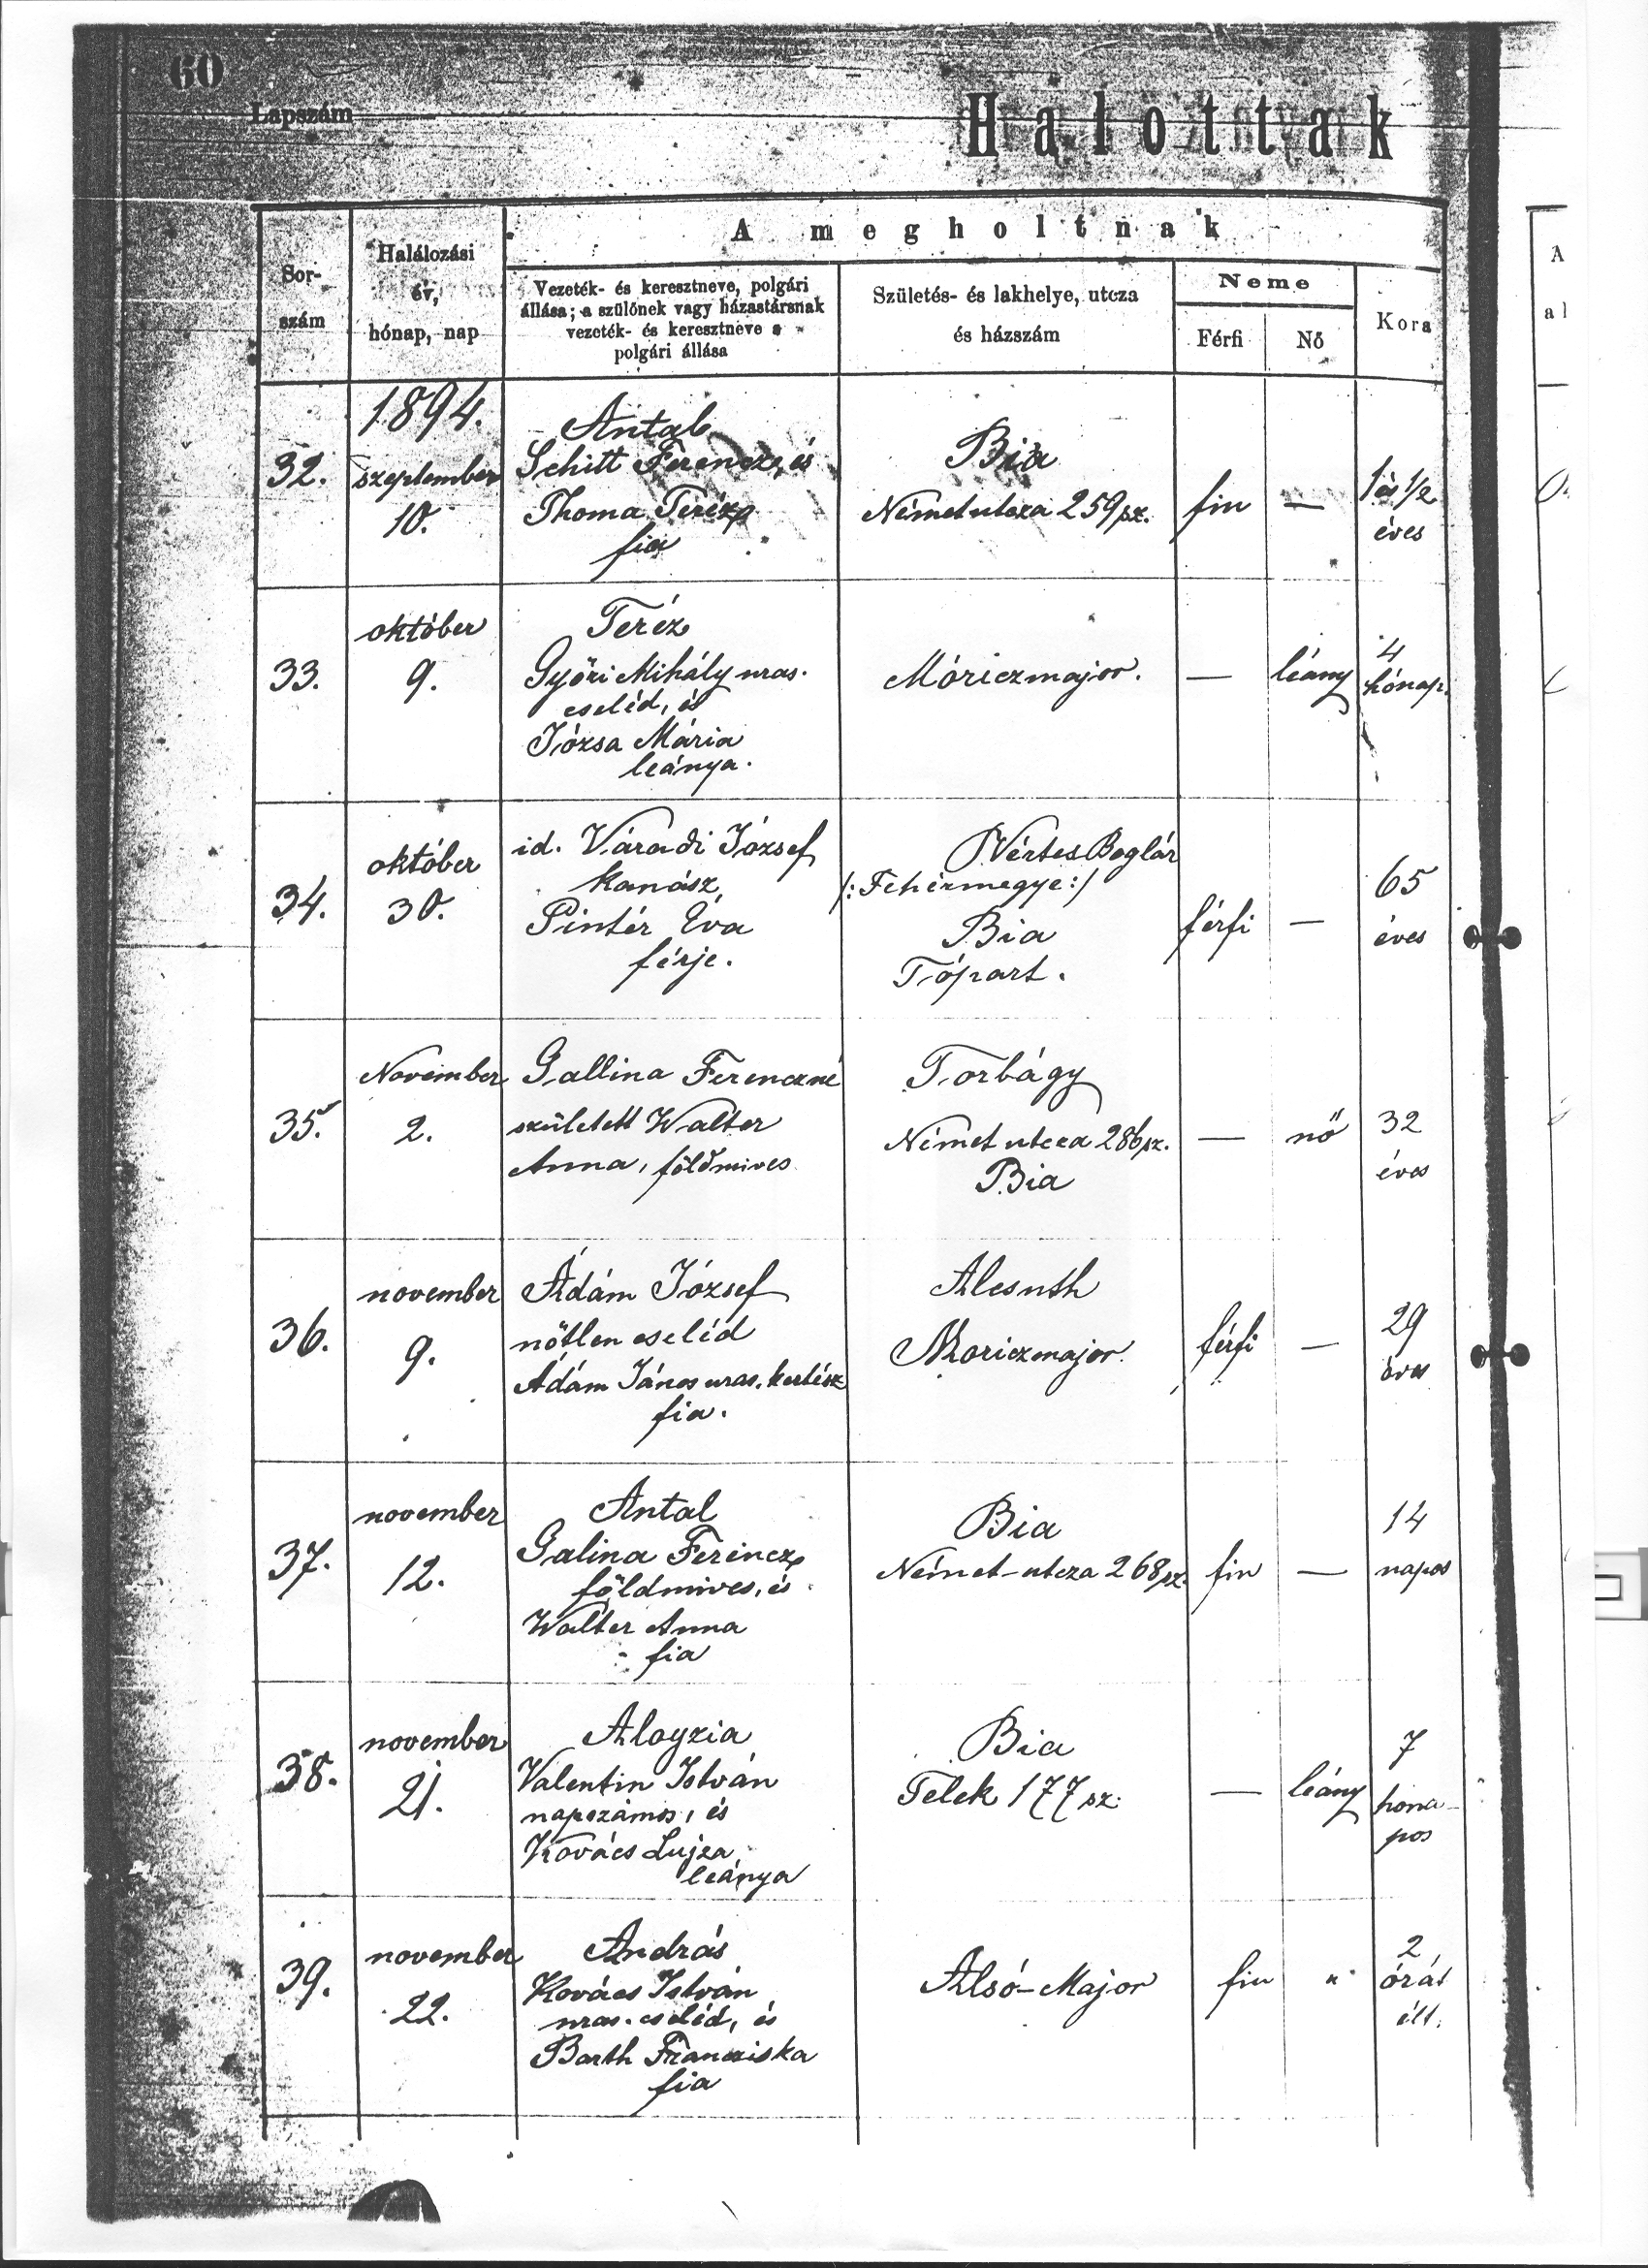 60
Lapszám
Halottak
A megholtnak
Sor-
szám
Halálozási
év,
hónap, nap
Vezeték- és keresztneve, polgári
állása; a szülőnek vagy házastársnak
vezeték- és keresztneve s
polgári állása
Születés- és lakhelye, utcza
és házszám
Neme
Férfi
Nő
Kora
1894.
32.
szeptember
10.
Antal
Schitt Ferencz, és
Thoma Teréz
fia
Bia
Német utcza 259 sz.
fiu
—
1 és 1/2
éves
33.
október
9.
Teréz
Győri Mihály uras.
cseléd, és
Józsa Mária
leánya.
Móriczmajor.
—
leány
4
hónap.
34.
október
30.
id. Váradi József
kanász,
Pintér Éva
férje.
Vértes Boglár
/: Fehérmegye :/
Bia
Tópart.
férfi
—
65
éves
35.
November
2.
Gallina Ferenczné
született Walter
Anna, földmives
Torbágy
Német utcza 286 sz.
Bia
—
nő
32
éves
36.
november
9.
Ádám József
nőtlen cseléd
Ádám János uras. kertész
fia.
Alcsuth
Moriczmajor.
férfi
—
29
éves
37.
november
12.
Antal
Galina Ferencz
földmives, és
Walter Anna
fia
Bia
Német-utcza 268 sz.
fiu
—
14
napos
38.
november
21.
Aloyzia
Valentin István
napszámos, és
Kovács Lujza
leánya
Bia
Telek 177 sz.
—
leány
7
hona-
pos
39.
november
22.
András
Kovács István
uras. cseléd, és
Barth Francziska
fia
Alsó-Major
fiu
"
2
órát
élt.
A
al